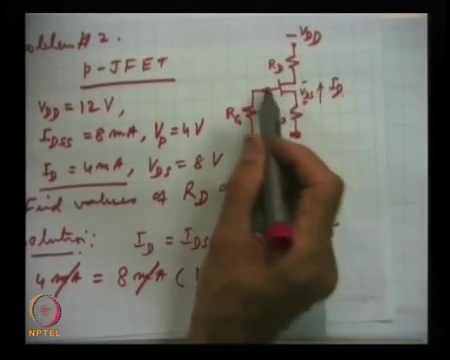 oblem # 2.
p-JFET
VDD = 12 V,
IDSS = 8 mA, Vp = 4 V
ID = 4 mA, VDS = 8 V
Find values of RD
olution:: ID = IDS
4 mA = 8 mA ( 1
- VDD
RD
VDS
ID
RG
NPTEL